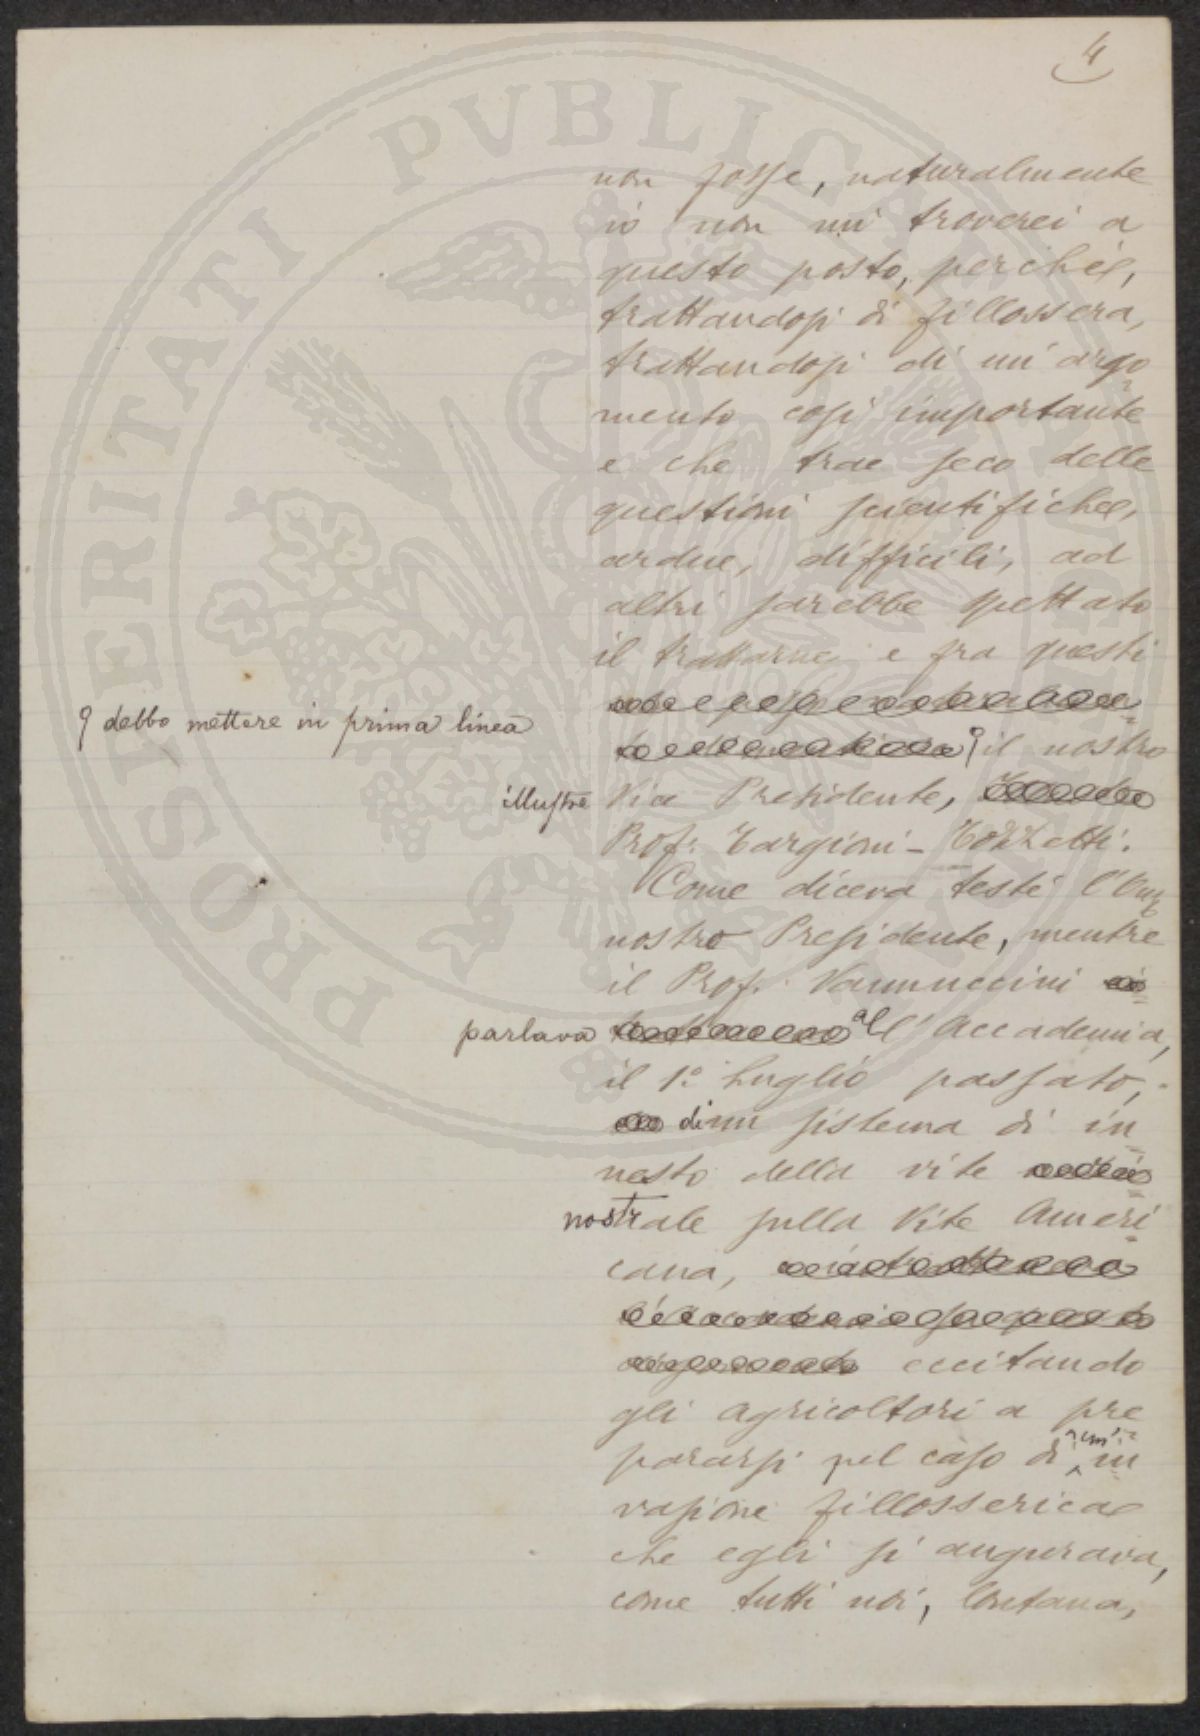 4
non fosse, naturalmente
io non mi troverei a
questo posto, perchè,
trattandosi di fillossera,
trattandosi di un' argo
mento così importante
e che trae seco delle
questioni scientifiche,
ardue, difficili, ad
altri sarebbe spettato
il trattarne e fra questi
debbo mettere in prima linea
il nostro
illustre Vice Presidente,
Prof. Targioni-Tozzetti.
Come diceva testè l'On.
nostro Presidente, mentre
il Prof. Vannuccini
parlava all'Accademia,
il 1º Luglio passato,
di un sistema di in
nesto della vite
nostrale sulla Vite Ameri
cana,
eccitando
gli agricoltori a pre
pararsi pel caso di un' in
vasione fillosserica
che egli si augurava,
come tutti noi, lontana,
PROSPERITATI PVBLICAE